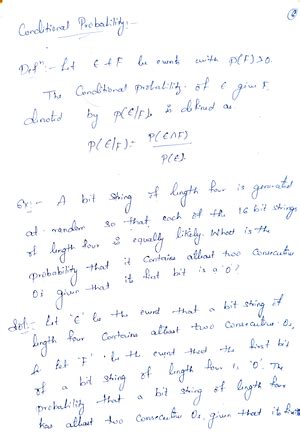 Conditional Probability:-
Defn:- Let E & F be events with P(F)>0.
The Conditional probability of E given F,
denoted by P(E/F), is defined as
P(E/F) = P(E∩F)
P(F)
Ex:- A bit string of length four is generated
at random so that each of the 16 bit strings
of length four is equally likely. What is the
probability that it contains atleast two Consecutive
0s given that its first bit is a '0'?
Sol:- Let 'E' be the event that a bit string of
length four Contains atleast two Consecutive 0s,
& let 'F' be the event that the first bit
of a bit string of length four is '0'. The
probability that a bit string of length four
has atleast two Consecutive 0s, given that its first